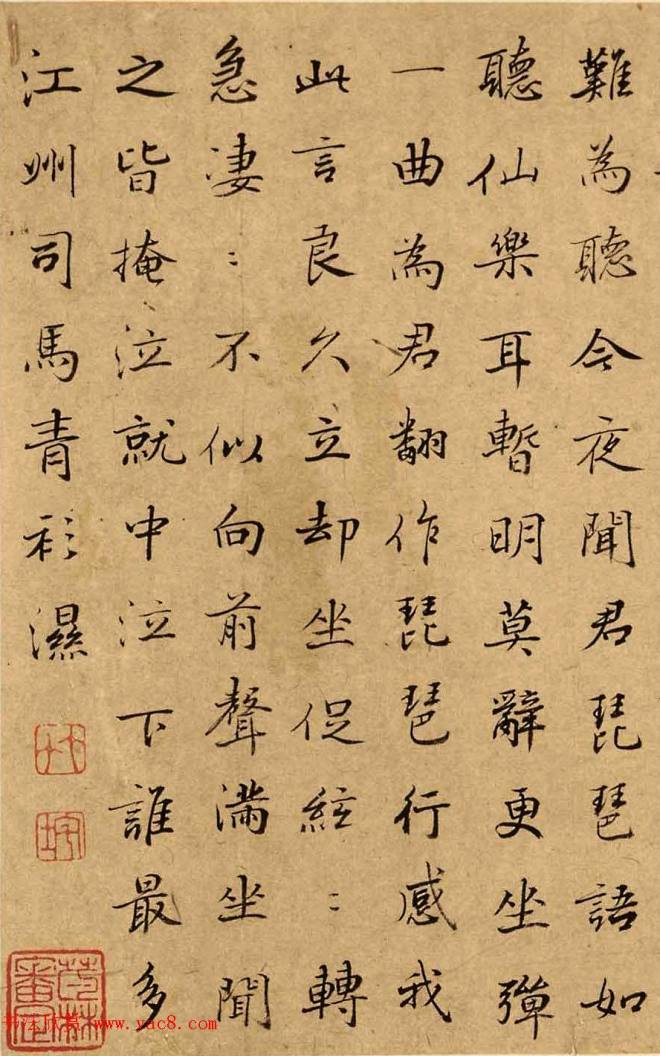 難為聽今夜聞君琵琶語如
聽仙樂耳暫明莫辭更坐彈
一曲為君翻作琵琶行感我
此言良久立却坐促絃:轉
急凄:不似向前聲滿坐聞
之皆掩泣就中泣下誰最多
江州司馬青衫濕
书法欣赏 www.yac8.com